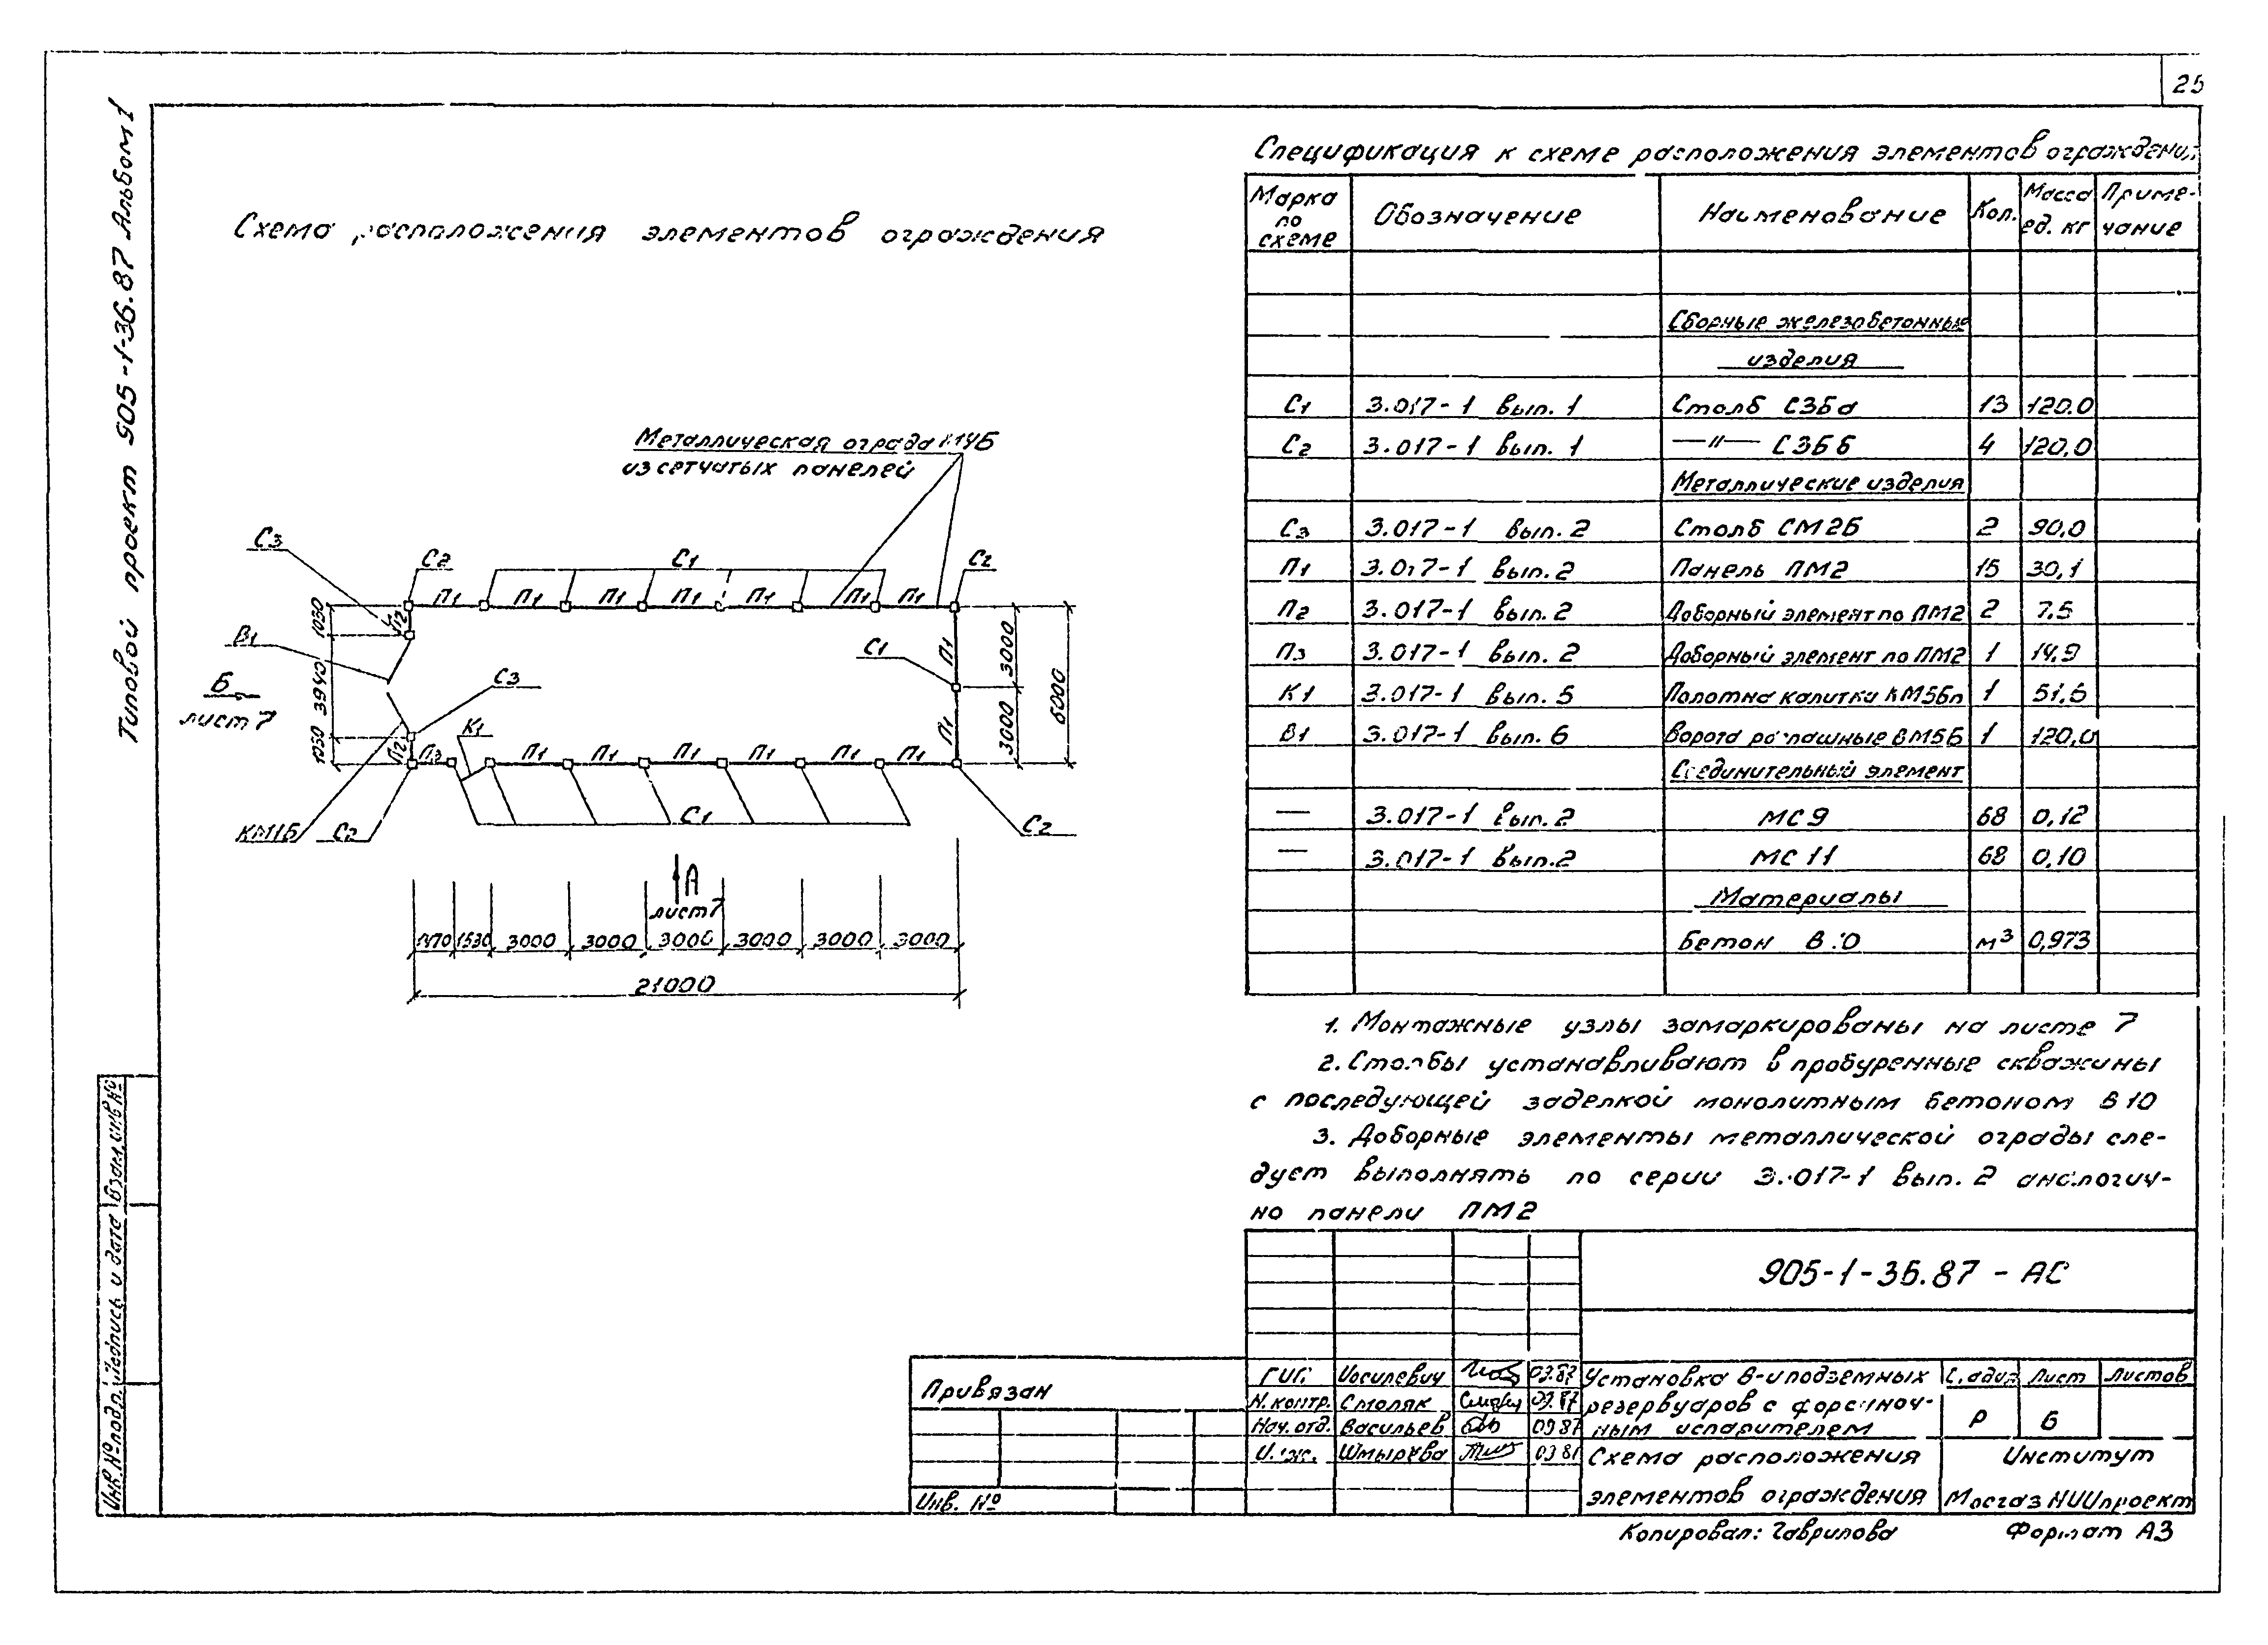 25
Типовой проект 905-1-36.87 Альбом I
Схема расположения элементов ограждения
Металлическая ограда М1УБ
из сетчатых панелей
С3
С2
С1
С2
П1 П1 П1 П1 П1 П1 П1
П2
В1
С1
П1
П1
Б
лист 7
С3
К1
П2
П3
П1 П1 П1 П1 П1 П1
КМ1Б
С2
С1
С2
1050
3940
1050
3000
3000
6000
А
лист 7
1470 1530 3000 3000 3000 3000 3000 3000
21000
Спецификация к схеме расположения элементов ограждения
Марка по схеме | Обозначение | Наименование | Кол. | Масса ед. кг | Приме-чание
Сборные железобетонные
изделия
С1 3.017-1 вып. 1 Столб С3Ба 13 120.0
С2 3.017-1 вып. 1 —"— С3Бб 4 120,0
Металлические изделия
С3 3.017-1 вып. 2 Столб СМ2Б 2 90,0
П1 3.017-1 вып. 2 Панель ПМ2 15 30,1
П2 3.017-1 вып. 2 Доборный элемент по ПМ2 2 7.5
П3 3.017-1 вып. 2 Доборный элемент по ПМ2 1 14,9
К1 3.017-1 вып. 5 Полотна калитки КМ5Бп 1 51,6
В1 3.017-1 вып. 6 Ворота распашные ВМ5Б 1 120,0
Соединительный элемент
— 3.017-1 вып. 2 МС9 68 0,12
— 3.017-1 вып.2 МС 11 68 0,10
Материалы
Бетон В10 м³ 0,973
1. Монтажные узлы замаркированы на листе 7
2. Столбы устанавливают в пробуренные скважины
с последующей заделкой монолитным бетоном В 10
3. Доборные элементы металлической ограды сле-
дует выполнять по серии 3.017-1 вып. 2 аналогич-
но панели ПМ2
905-1-36.87 - АС
Привязан
Инв. №
ГИП Иосилевич 03.87
Н. контр. Смоляк 03.87
Нач. отд. Васильев 03 87
Инж. Шмырева 03 87
Установка 8-и подземных
резервуаров с форсуноч-
ным испарителем
Стадия Лист Листов
Р 6
Схема расположения
элементов ограждения
Институт
МосгазНИИпроект
Копировал: Гаврилова Формат А3
Инв. № подл. Подпись и дата Взам. инв №